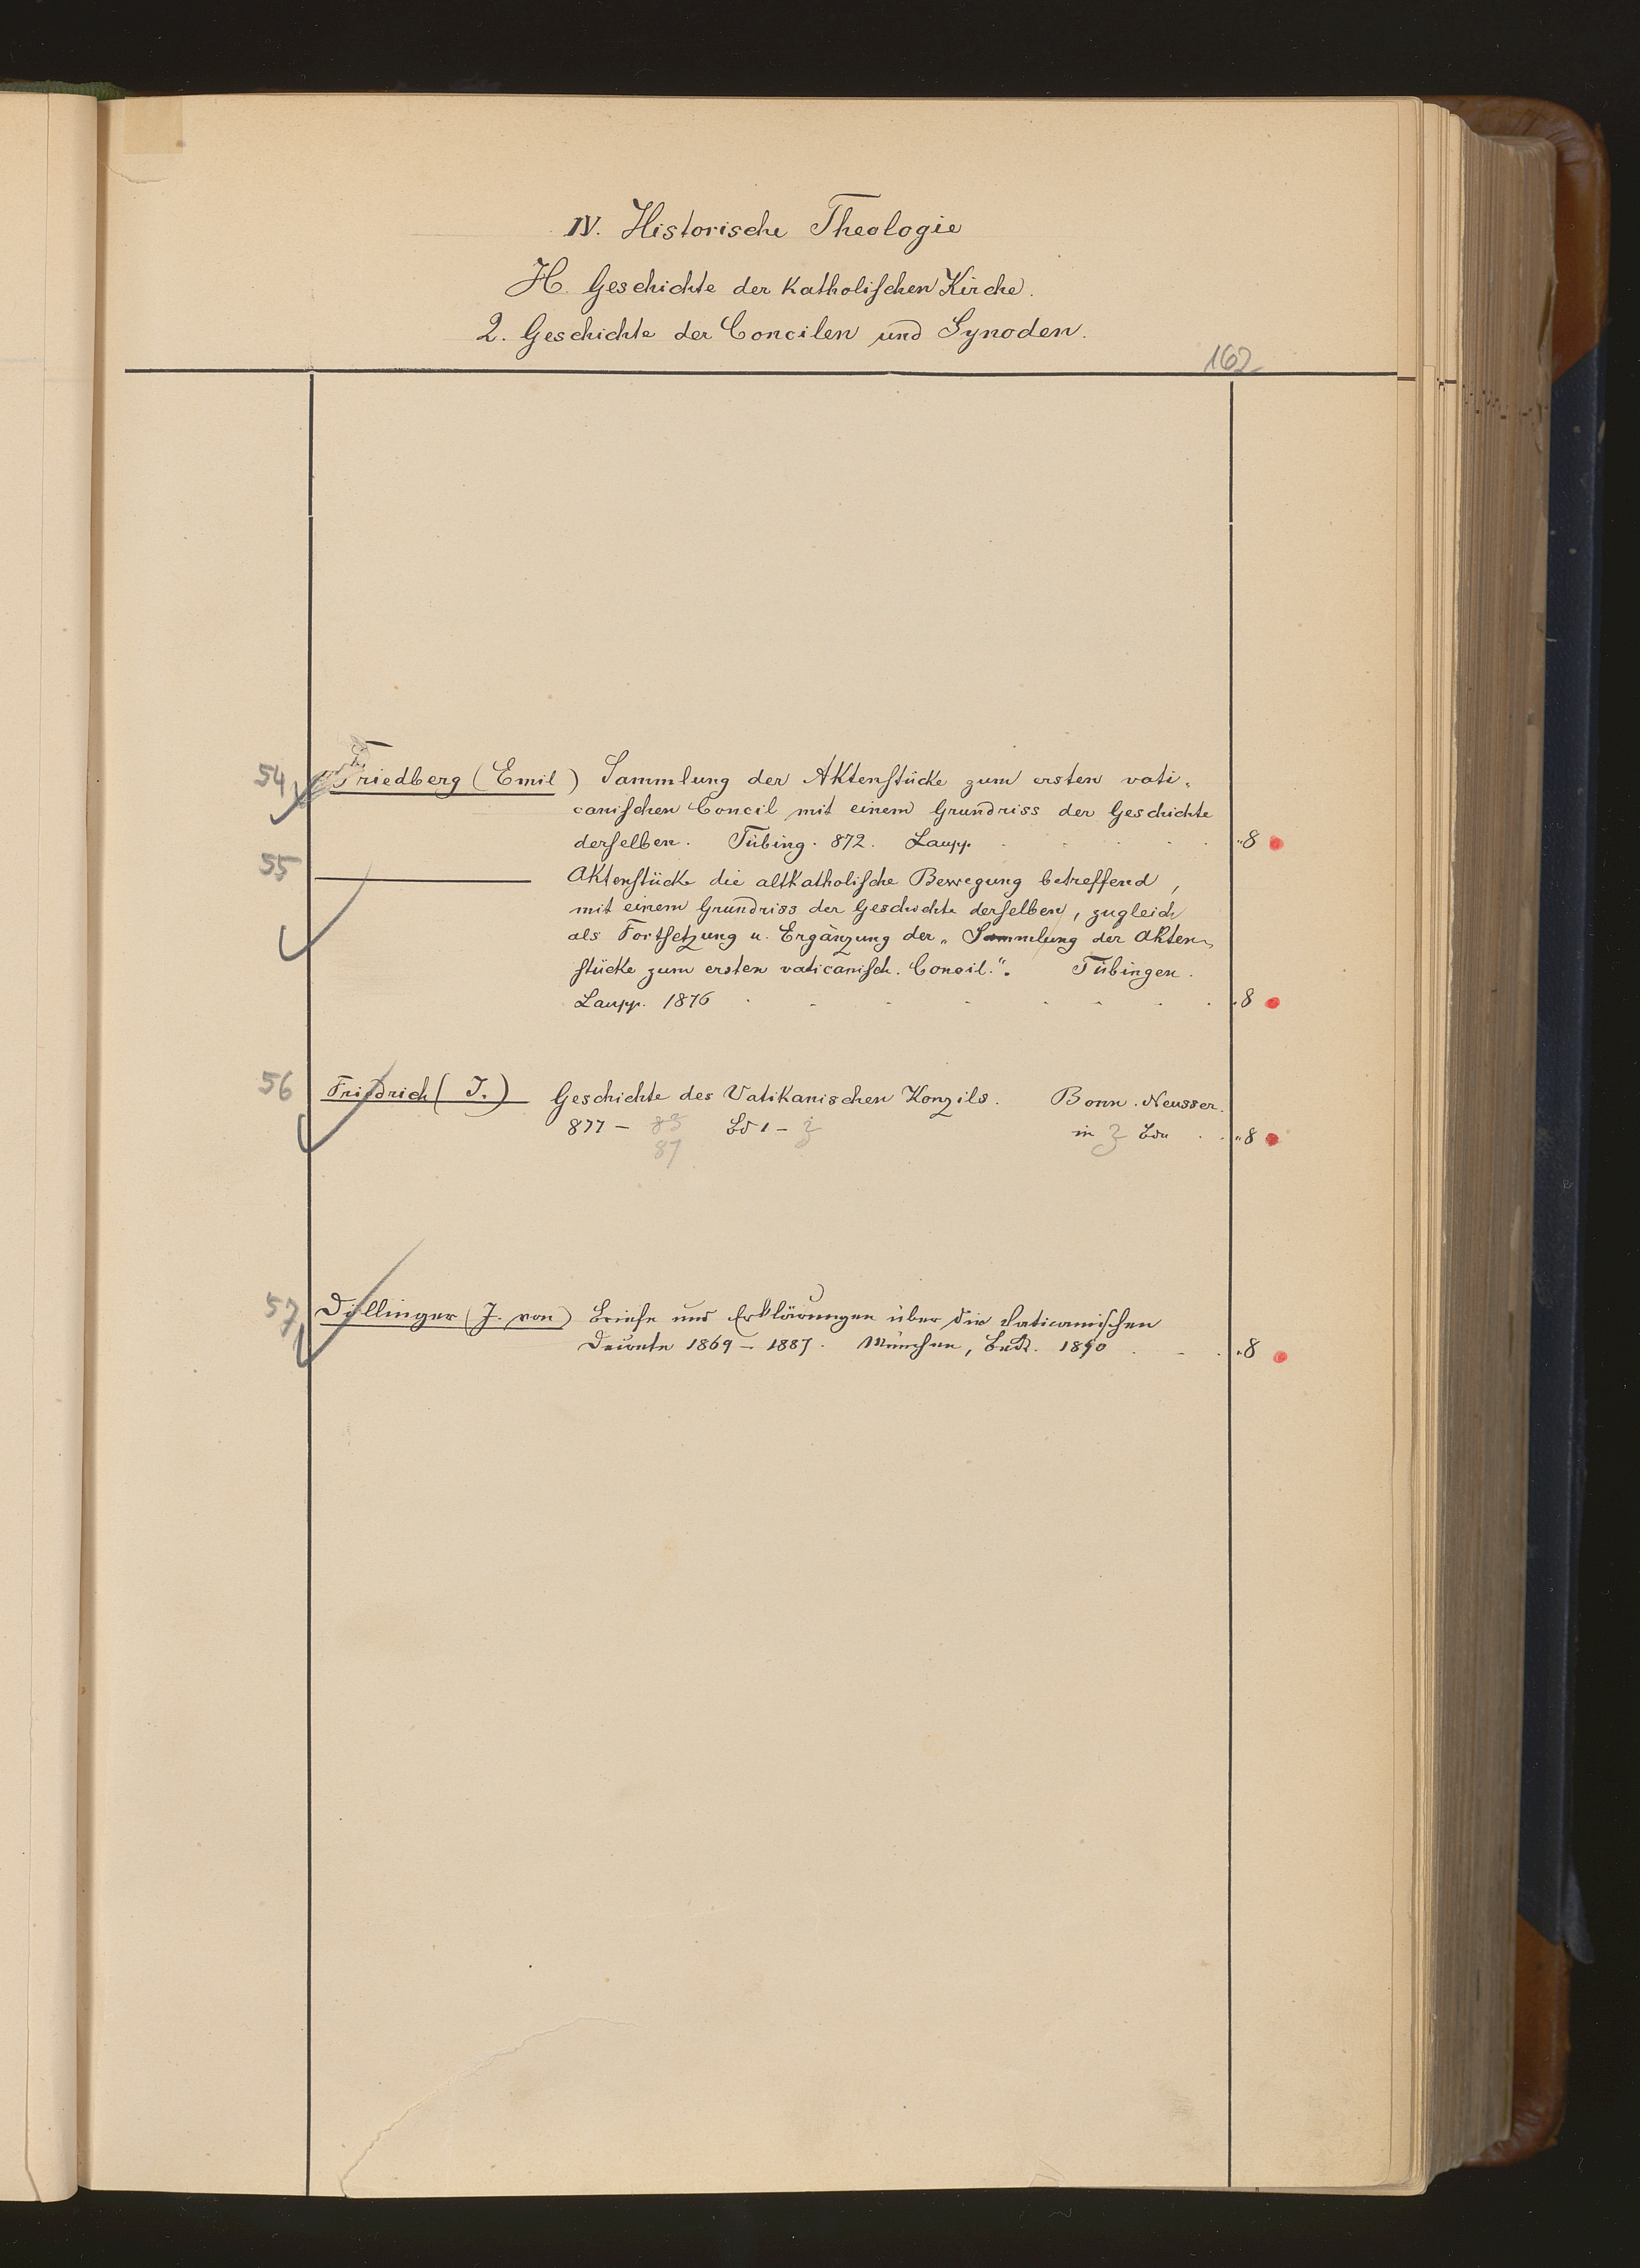 IV. Historische Theologie
H. Geschichte der Katholischen Kirche.
2. Geschichte der Concilen und Synoden.
162
54 Friedberg (Emil) Sammlung der Aktenstücke zum ersten vati-
canischen Concil mit einem Grundriss der Geschichte
derselben. Tübing. 872. Laupp. "8
55 Aktenstücke die altkatholische Bewegung betreffend,
mit einem Grundriss der Geschichte derselben, zugleich
als Fortsetzung u. Ergänzung der „Sammlung der Akten-
stücke zum ersten vaticanisch. Concil.". Tübingen.
Laupp. 1876 "8
56 Friedrich (J.) Geschichte des Vatikanischen Konzils. Bonn. Neusser.
877 – 83 Bd 1 – 3 in 3 Bdn "8
87
57 Döllinger (J. von) Briefe und Erklärungen über die Vaticanischen
Decrete 1869 – 1887. München, Beck. 1890 "8